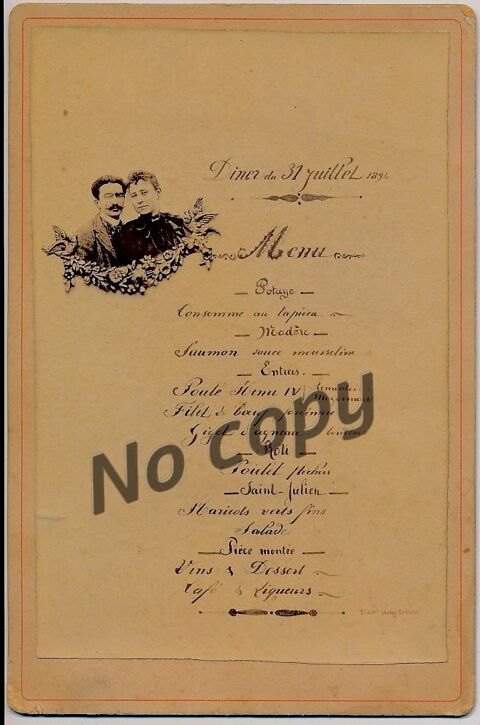 Diner du 31 Juillet 1894
Menu
Potage
Consomme au tapioca
Madère
Saumon sauce mousseline
Entrées
Poule Henri IV
Filet de
Gigot d'agneau
Roti
Poulet
Saint-Julien
Haricots verts fins
Salade
Pièce montée
Vins & Dessert
Café & Liqueurs
No copy